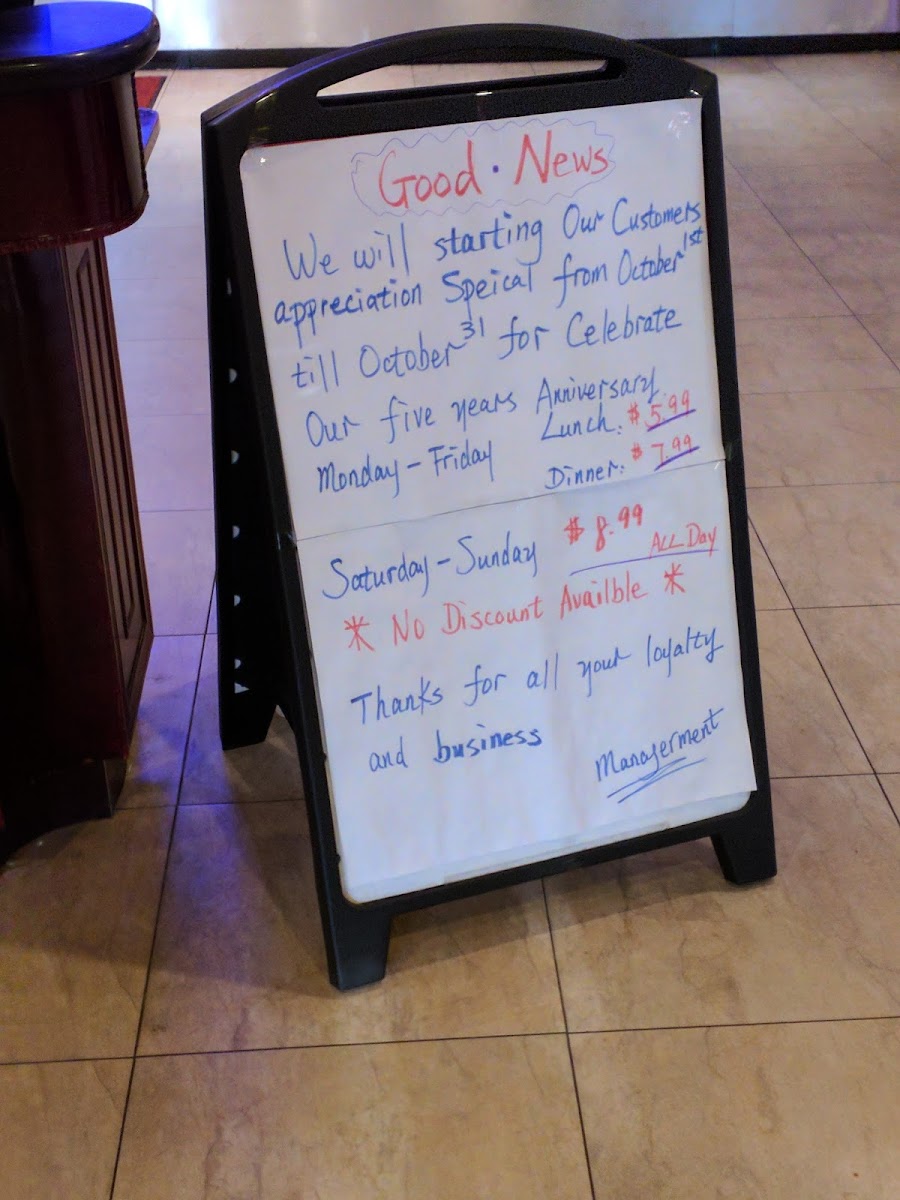 Good · News
We will starting Our Customers
appreciation Speical from October 1st
till October 31 for Celebrate
Our five years Anniversary
Monday - Friday Lunch: $5.99
Dinner: $7.99
Saturday - Sunday $8.99
ALL Day
* No Discount Availble *
Thanks for all your loyalty
and business
Managerment